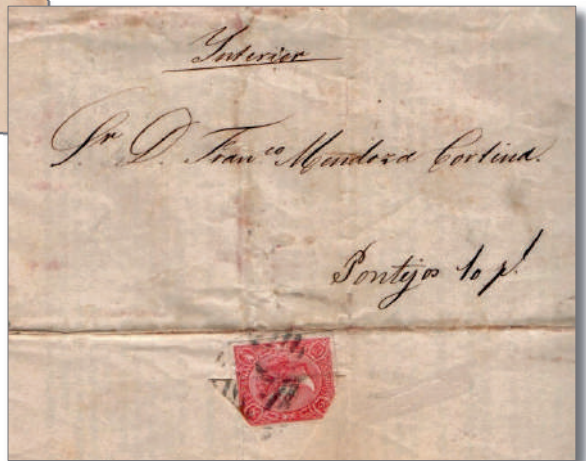 Interior
Sr. D. Franco Mendoza Cortina.
Pontejos 10 pl.